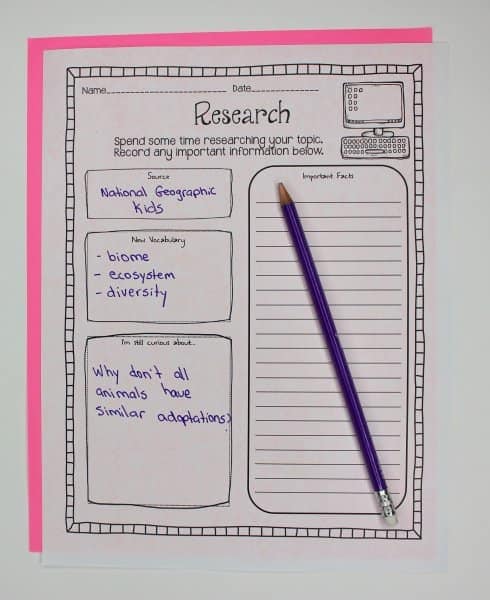 Name____________________ Date____________
Research
Spend some time researching your topic.
Record any important information below.
Source
National Geographic
Kids
New Vocabulary
- biome
- ecosystem
- diversity
I'm still curious about...
Why don't all
animals have
similar adaptations?
Important Facts